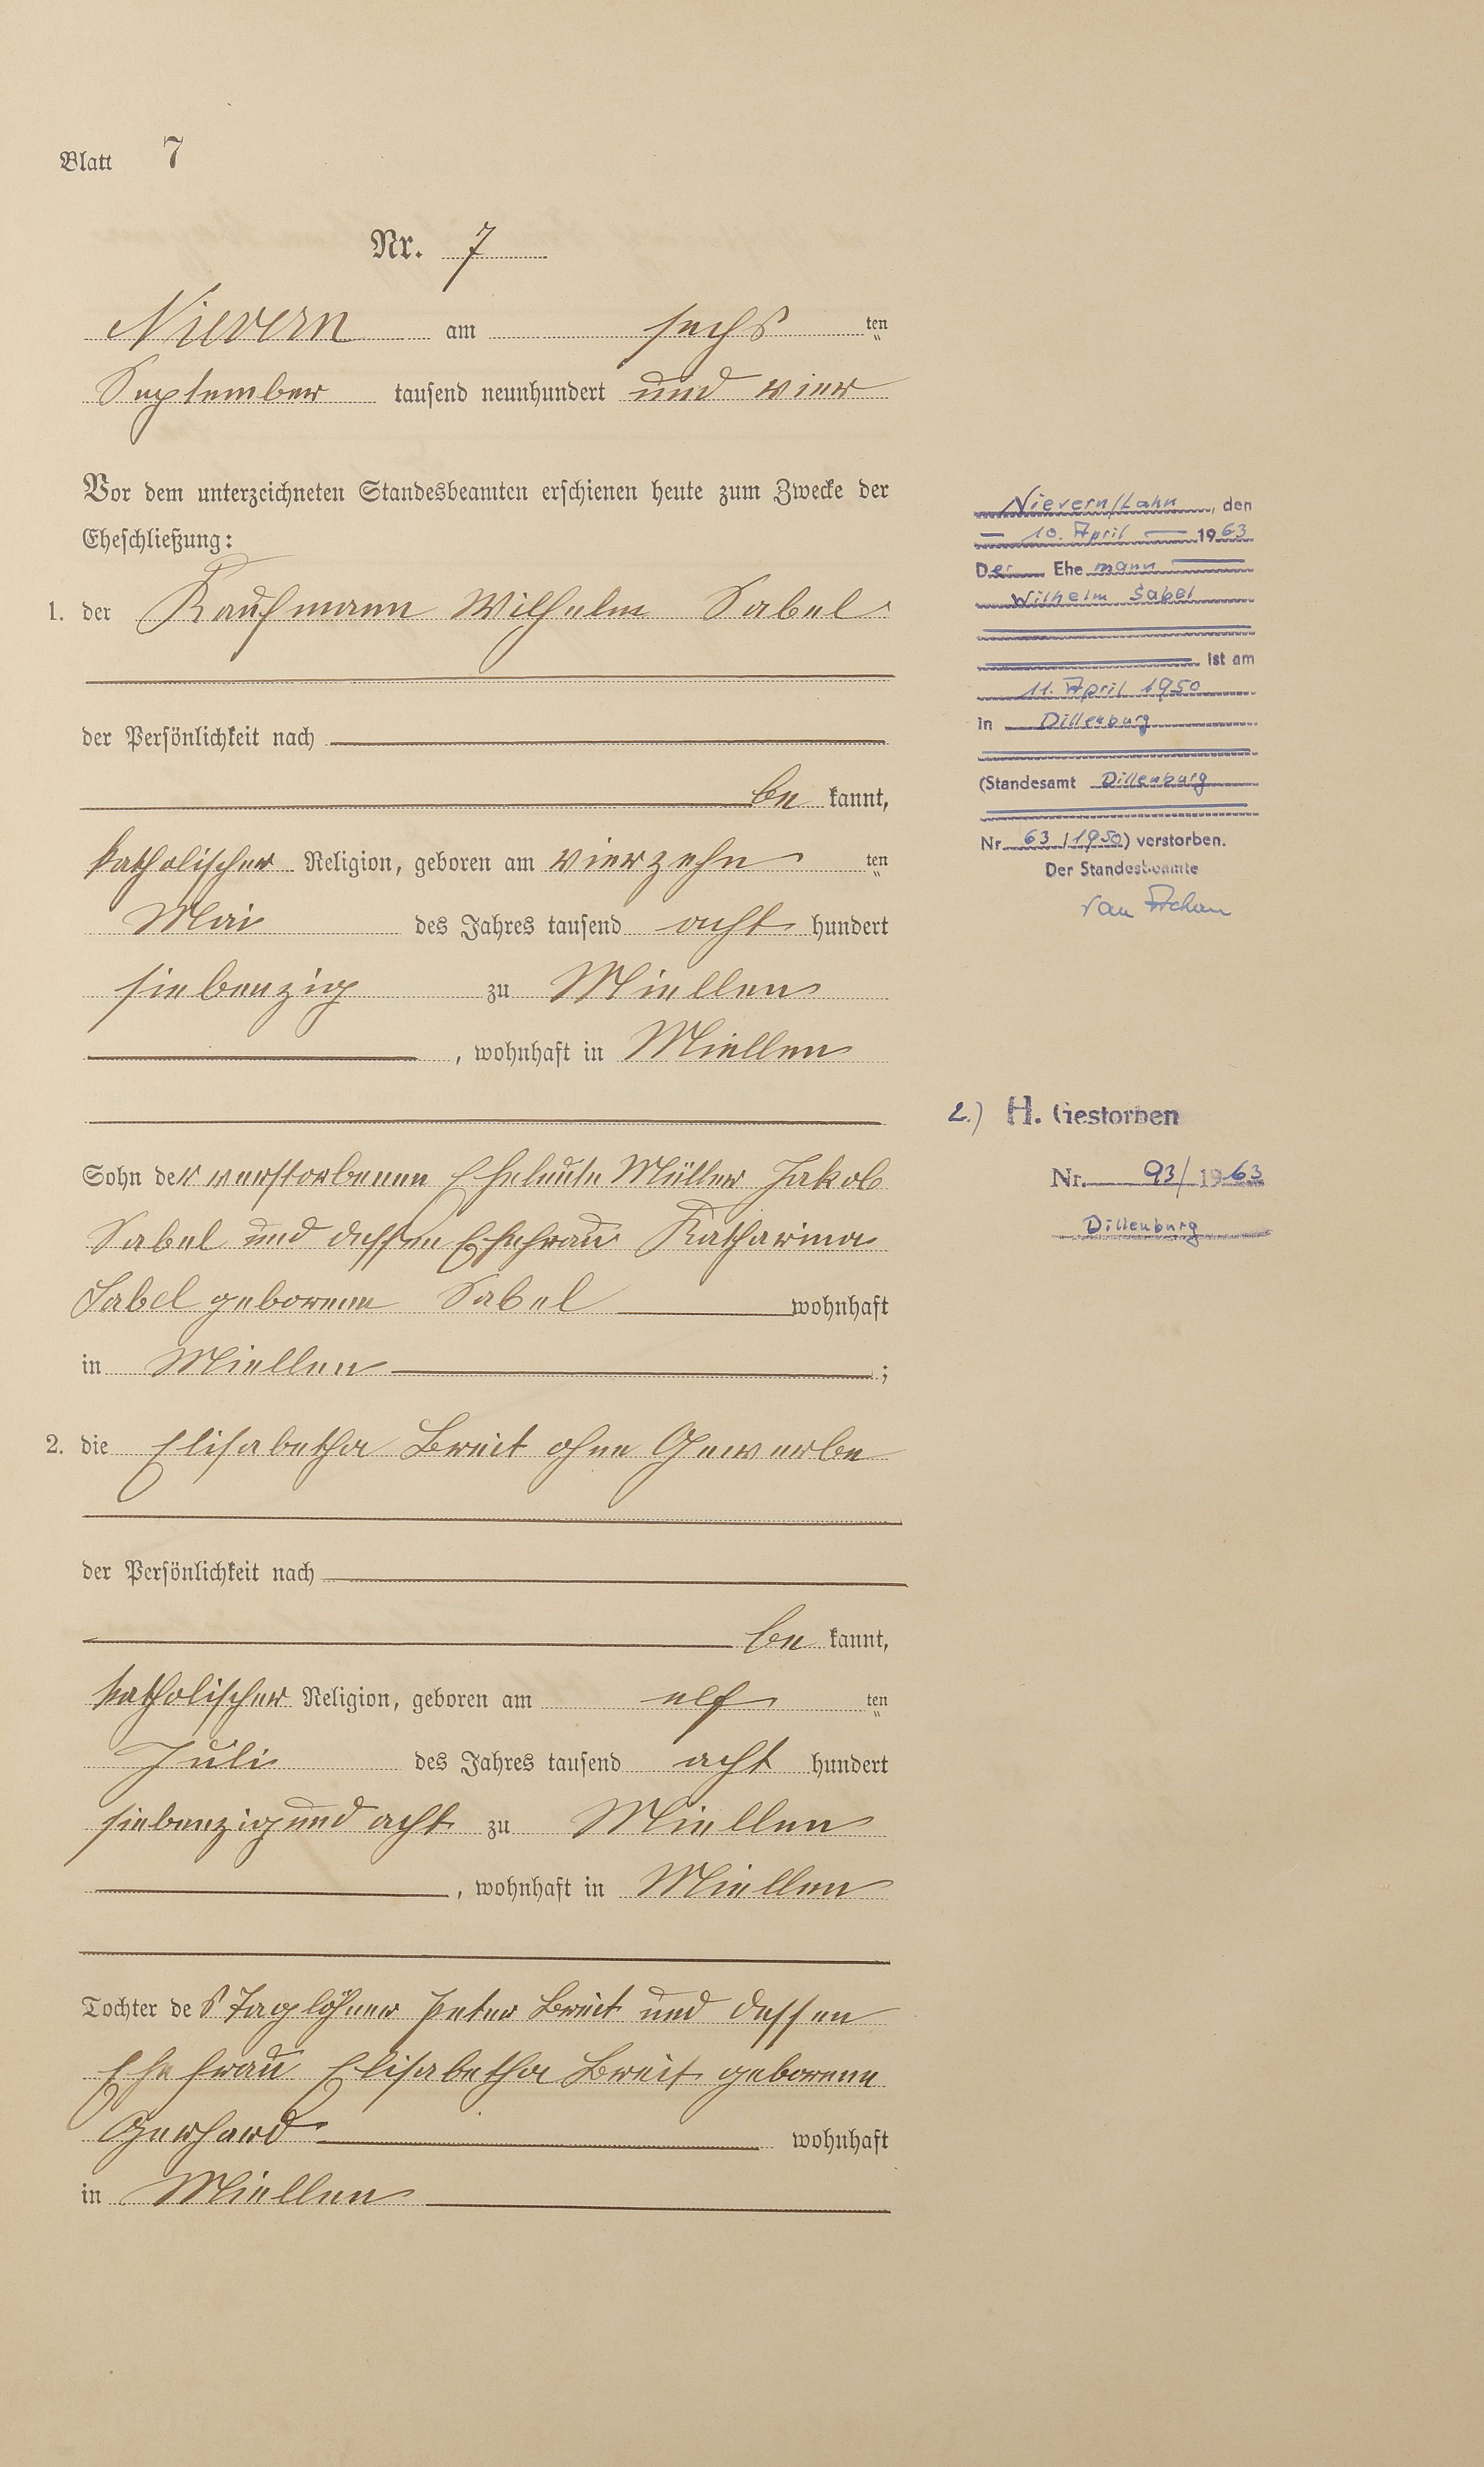 Blatt 7
Nr. 7
Nievern am sechs ten
September tausend neunhundert und vier
Vor dem unterzeichneten Standesbeamten erschienen heute zum Zwecke der
Eheschließung:
1. der Kaufmann Wilhelm Sabel
der Persönlichkeit nach
be kannt,
katholischer Religion, geboren am vierzehn ten
Mai des Jahres tausend acht hundert
siebenzig zu Miellen
, wohnhaft in Miellen
Sohn der verstorbenen Eheleute Müller Jakob
Sabel und dessen Ehefrau Katharina
Sabel geborene Sabel wohnhaft
in Miellen ;
2. die Elisabetha Breit ohne Gewerbe
der Persönlichkeit nach
be kannt,
katholischer Religion, geboren am elf ten
Juli des Jahres tausend acht hundert
siebenzig und acht zu Miellen
, wohnhaft in Miellen
Tochter des Taglöhner Peter Breit und dessen
Ehefrau Elisabetha Breit geborene
Gerhard wohnhaft
in Miellen
Nievern/Lahn, den
10. April 1963
Der Ehemann
Wilhelm Sabel
ist am
11. April 1950
in Dillenburg
(Standesamt Dillenburg
Nr. 63/1950) verstorben.
Der Standesbeamte
2.) H. Gestorben
Nr. 93/1963
Dillenburg